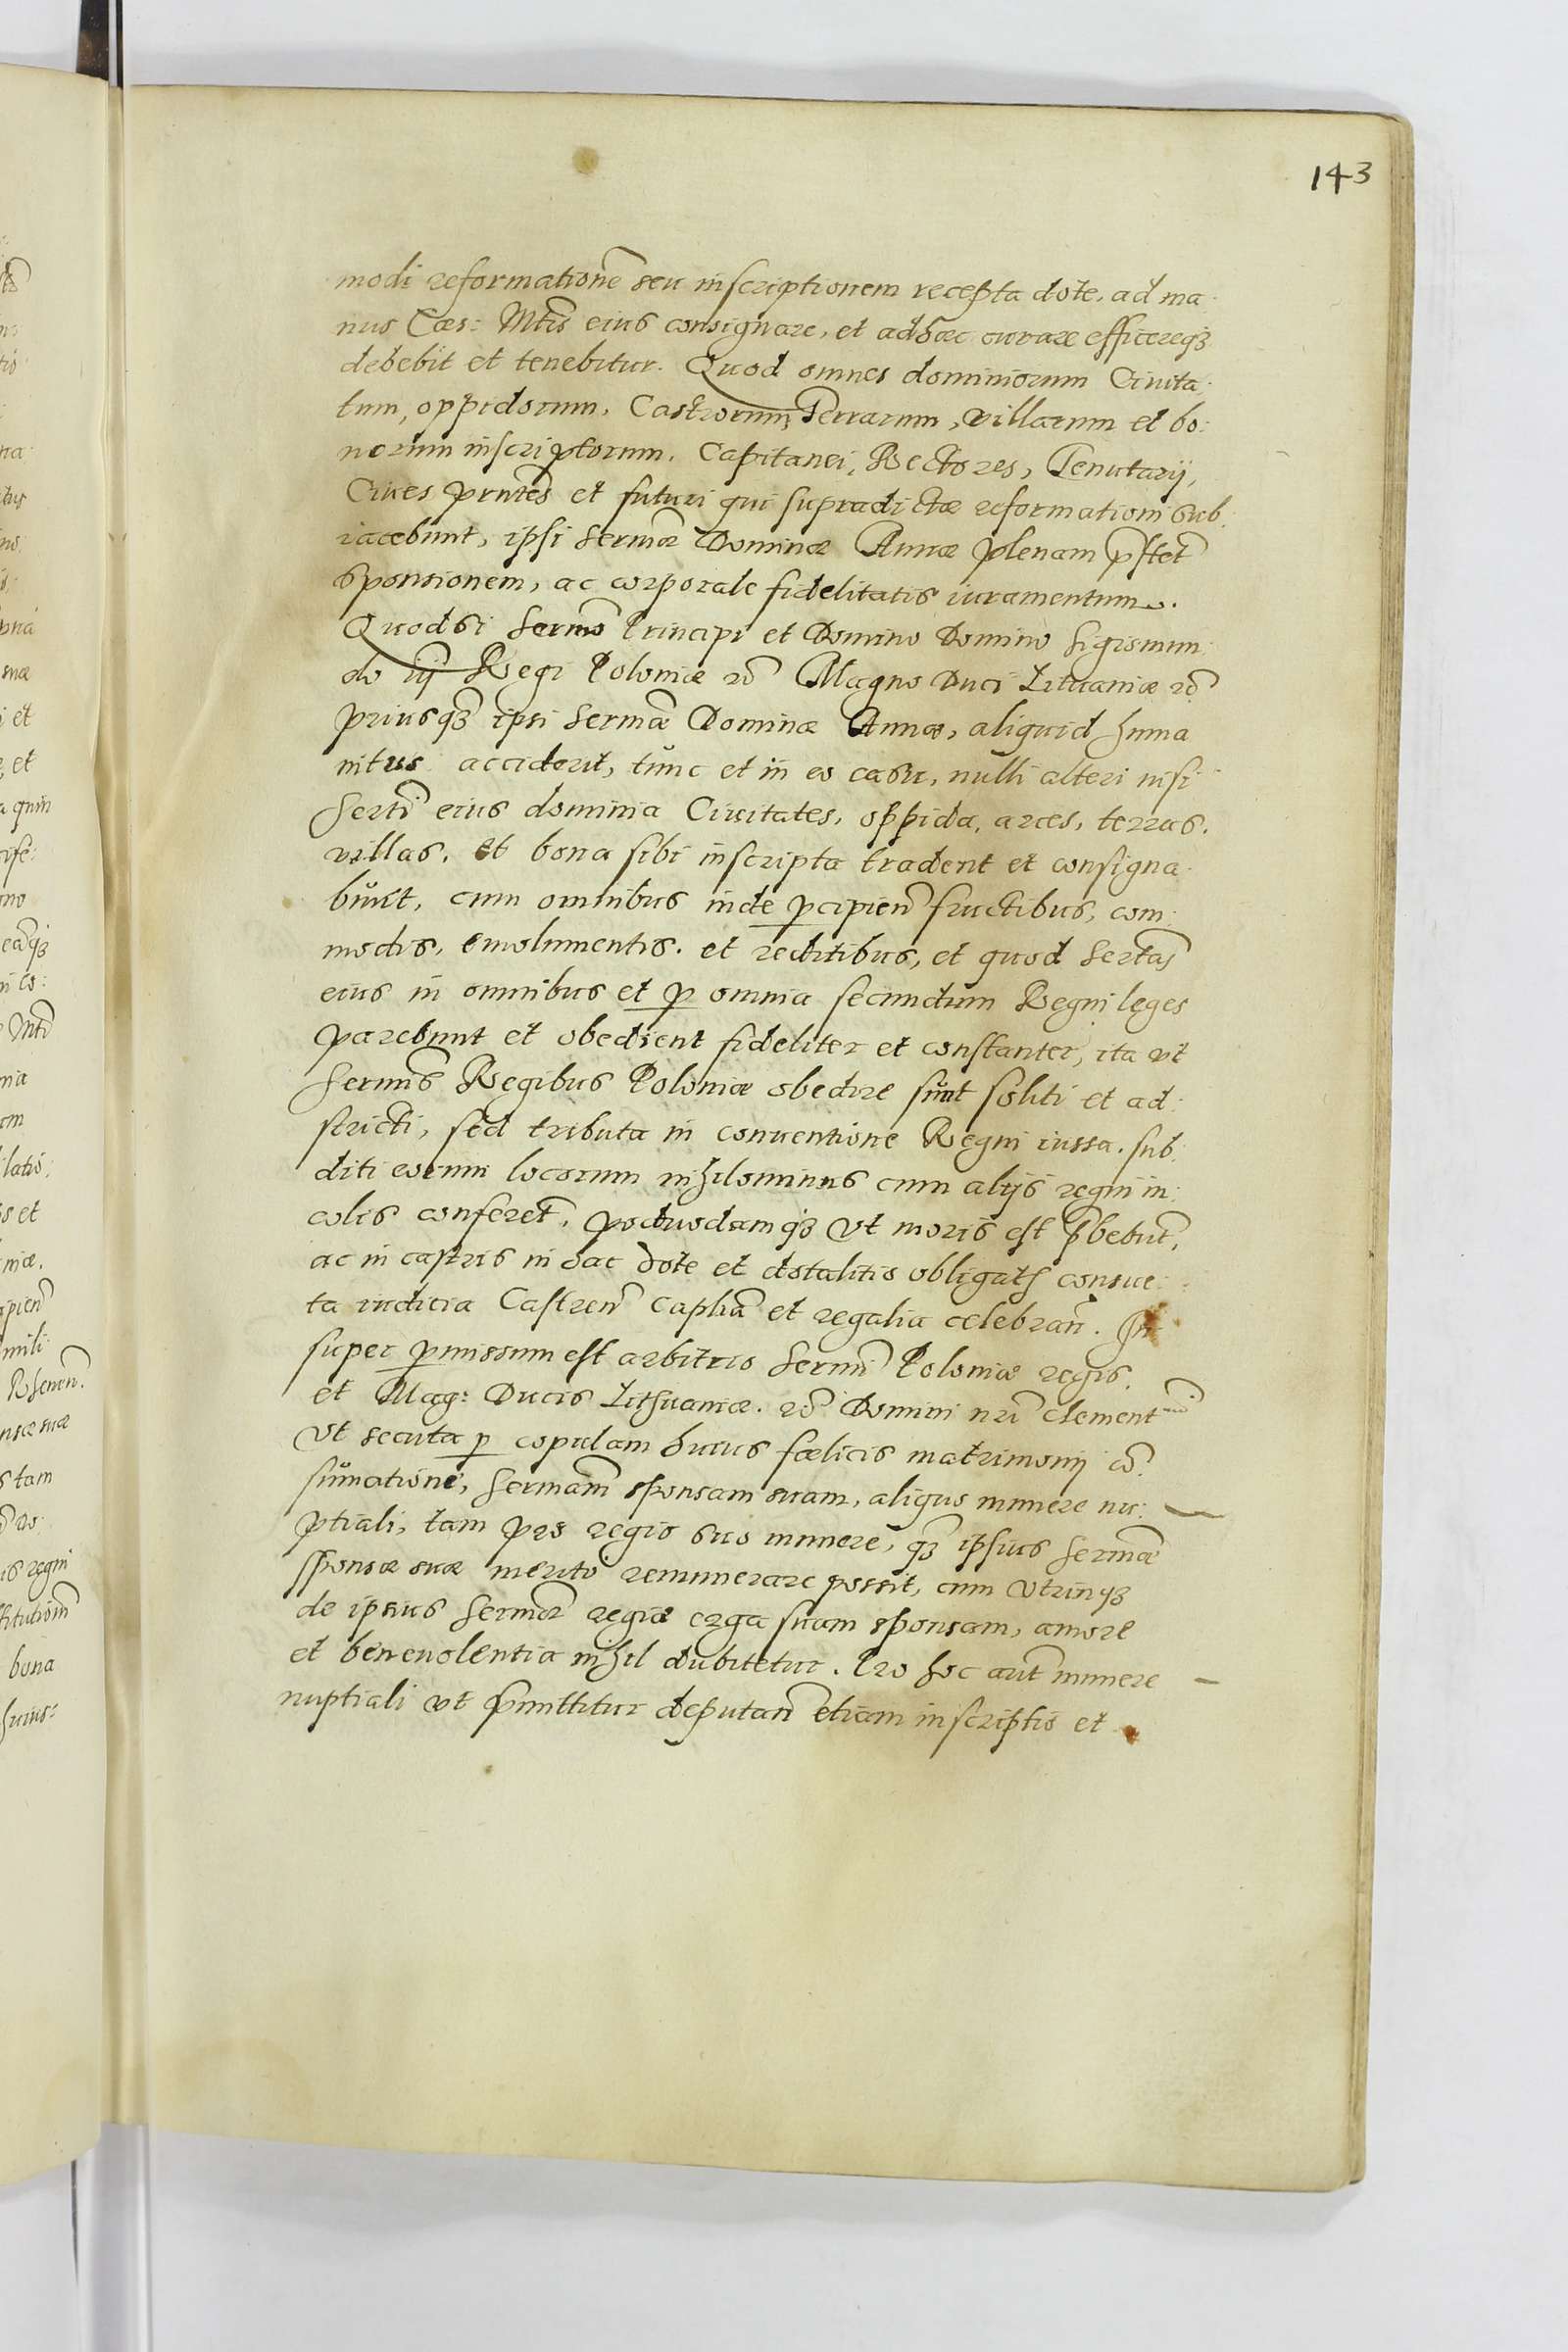 143
modi reformatione͂ seu inscriptionem recepta dote, ad ma
nus Cæs: Mtis eius consignare, et ad hæc curare efficereqꝫ
debebit et tenebitur. Quod omnes dominiorum Ciuita
tum, oppidorum, Castrorum, Terrarum, villarum et bo:
norum inscriptorum, Capitanei, Rectores, Tenutarij,
Ciues pn̄tes et futuri qui supradictæ reformationi sub
iacebunt, ipsi Sermæ Dominæ Annæ plenam p̄stet
sponsionem, ac corporale fidelitatis iuramentum.
Quodsi Sermo Principi et Domino Domino Sigismun
do iij Regi Poloniæ ꝛc̄ Magno Duci Lituaniæ ꝛc̄
priusqꝫ ipsi Sermæ Dominæ Annæ, aliquid huma
nitus acciderit, tunc et in eo casu, nulli alteri nisi
Serti eius dominia Ciuitates, oppida, arces, terras,
villas, et bona sibi inscripta tradent et consigna
bunt, cum omnibus inde ꝑcipien̄ fructibus, com
modis, emolumentis, et reditibus, et quod Serta͂j
eius in omnibus et ꝑ omnia secundum Regni leges
parebunt et obedient fideliter et constanter, ita vt
Sermis Regibus Poloniæ obedire sunt soliti et ad
stricti, sed tributa in conuentione Regni iussa, sub
diti eorum locorum nihilominus cum alijs regni in
colis conferet̄, poduodamqꝫ vt moris est p̄bebūt,
ac in castris in hac dote et dotalitio obligatis consue:
ta iudicia Castren̄ Caplia͂ et regalia celebran̄. In
super ꝑmissum est arbitrio Sermi Poloniæ regis,
et Mag: Ducis Lithuaniæ. ꝛc̄ Domini nr̄i clement͂mi
Vt secuta ꝑ copulam huius fœlicis matrimonij cō
sum̄atione, Sermam sponsam suam, aliquo munere nu:
ptiali, tam pro regio suo munere, qꝫ ipsius Sermæ
sponsæ suæ merito remunerare possit, cum vtrinqꝫ
de ipsius Sermæ regiæ erga suam sponsam, amore
et beneuolentia nihil dubitetur. Pro hoc aut̄ munere
nuptiali vt p̄mittitur deputan̄ etiam inscriptio et